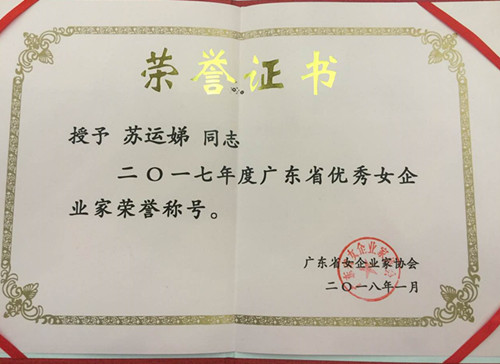 荣誉证书
授予 苏运娣 同志
二〇一七年度广东省优秀女企
业家荣誉称号。
广东省女企业家协会
二〇一八年一月